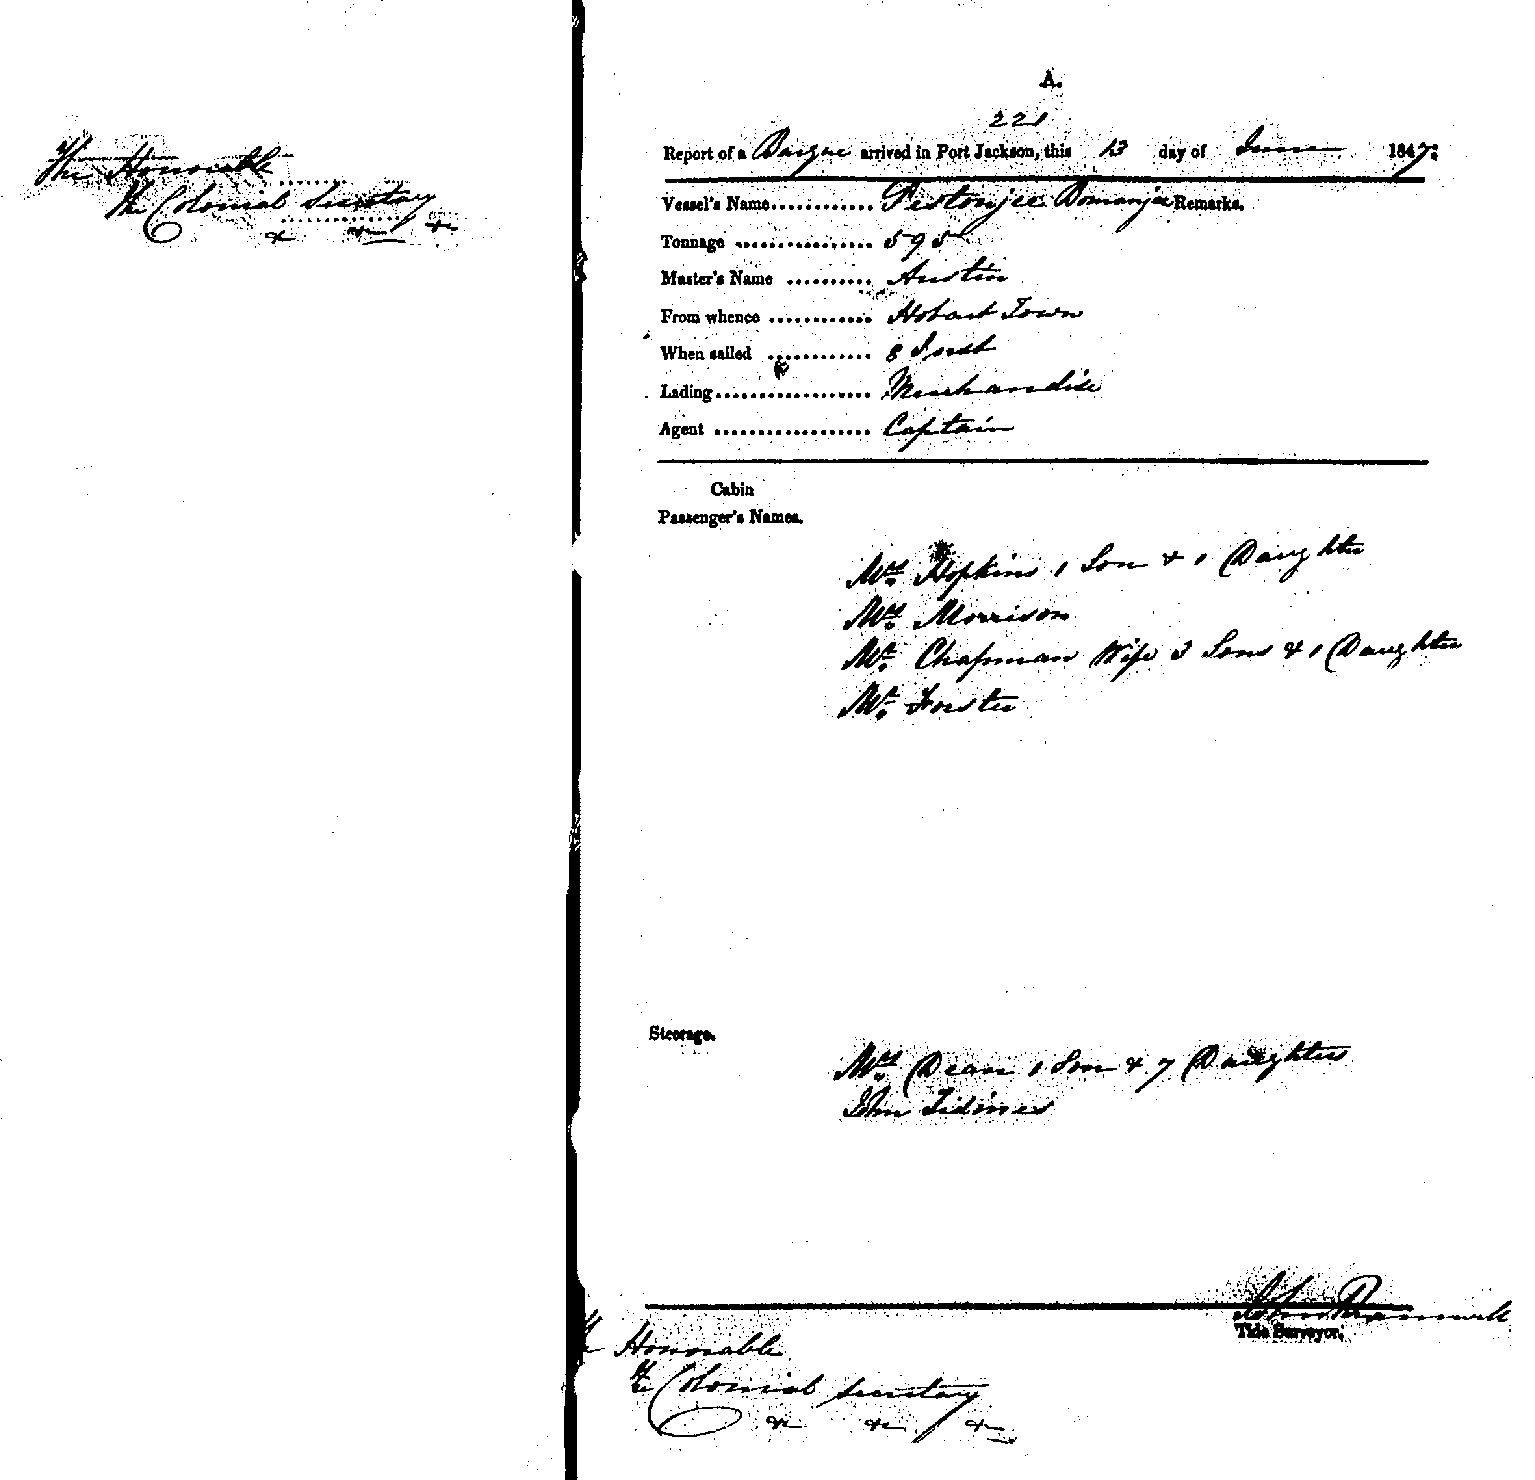 The Honorable
The Colonial Secretary
& & &
A.
221
Report of a Barque arrived in Port Jackson, this 13 day of June 1847.
Vessel's Name............ Pestonjee Bomanjee Remarks.
Tonnage ................ 595
Master's Name .......... Austin
From whence ............ Hobart Town
When sailed ............ 8 Inst
Lading.................. Merchandise
Agent .................. Captain
Cabin
Passenger's Names.
Mrs. Hopkins 1 Son & 1 Daughter
Mrs. Morrison
Mr. Chapman Wife 3 Sons & 1 Daughter
Mr. Forster
Steerage.
Mrs. Dean 1 Son & 7 Daughters
John
John
Tide Surveyor.
The Honorable
The Colonial Secretary
& & &